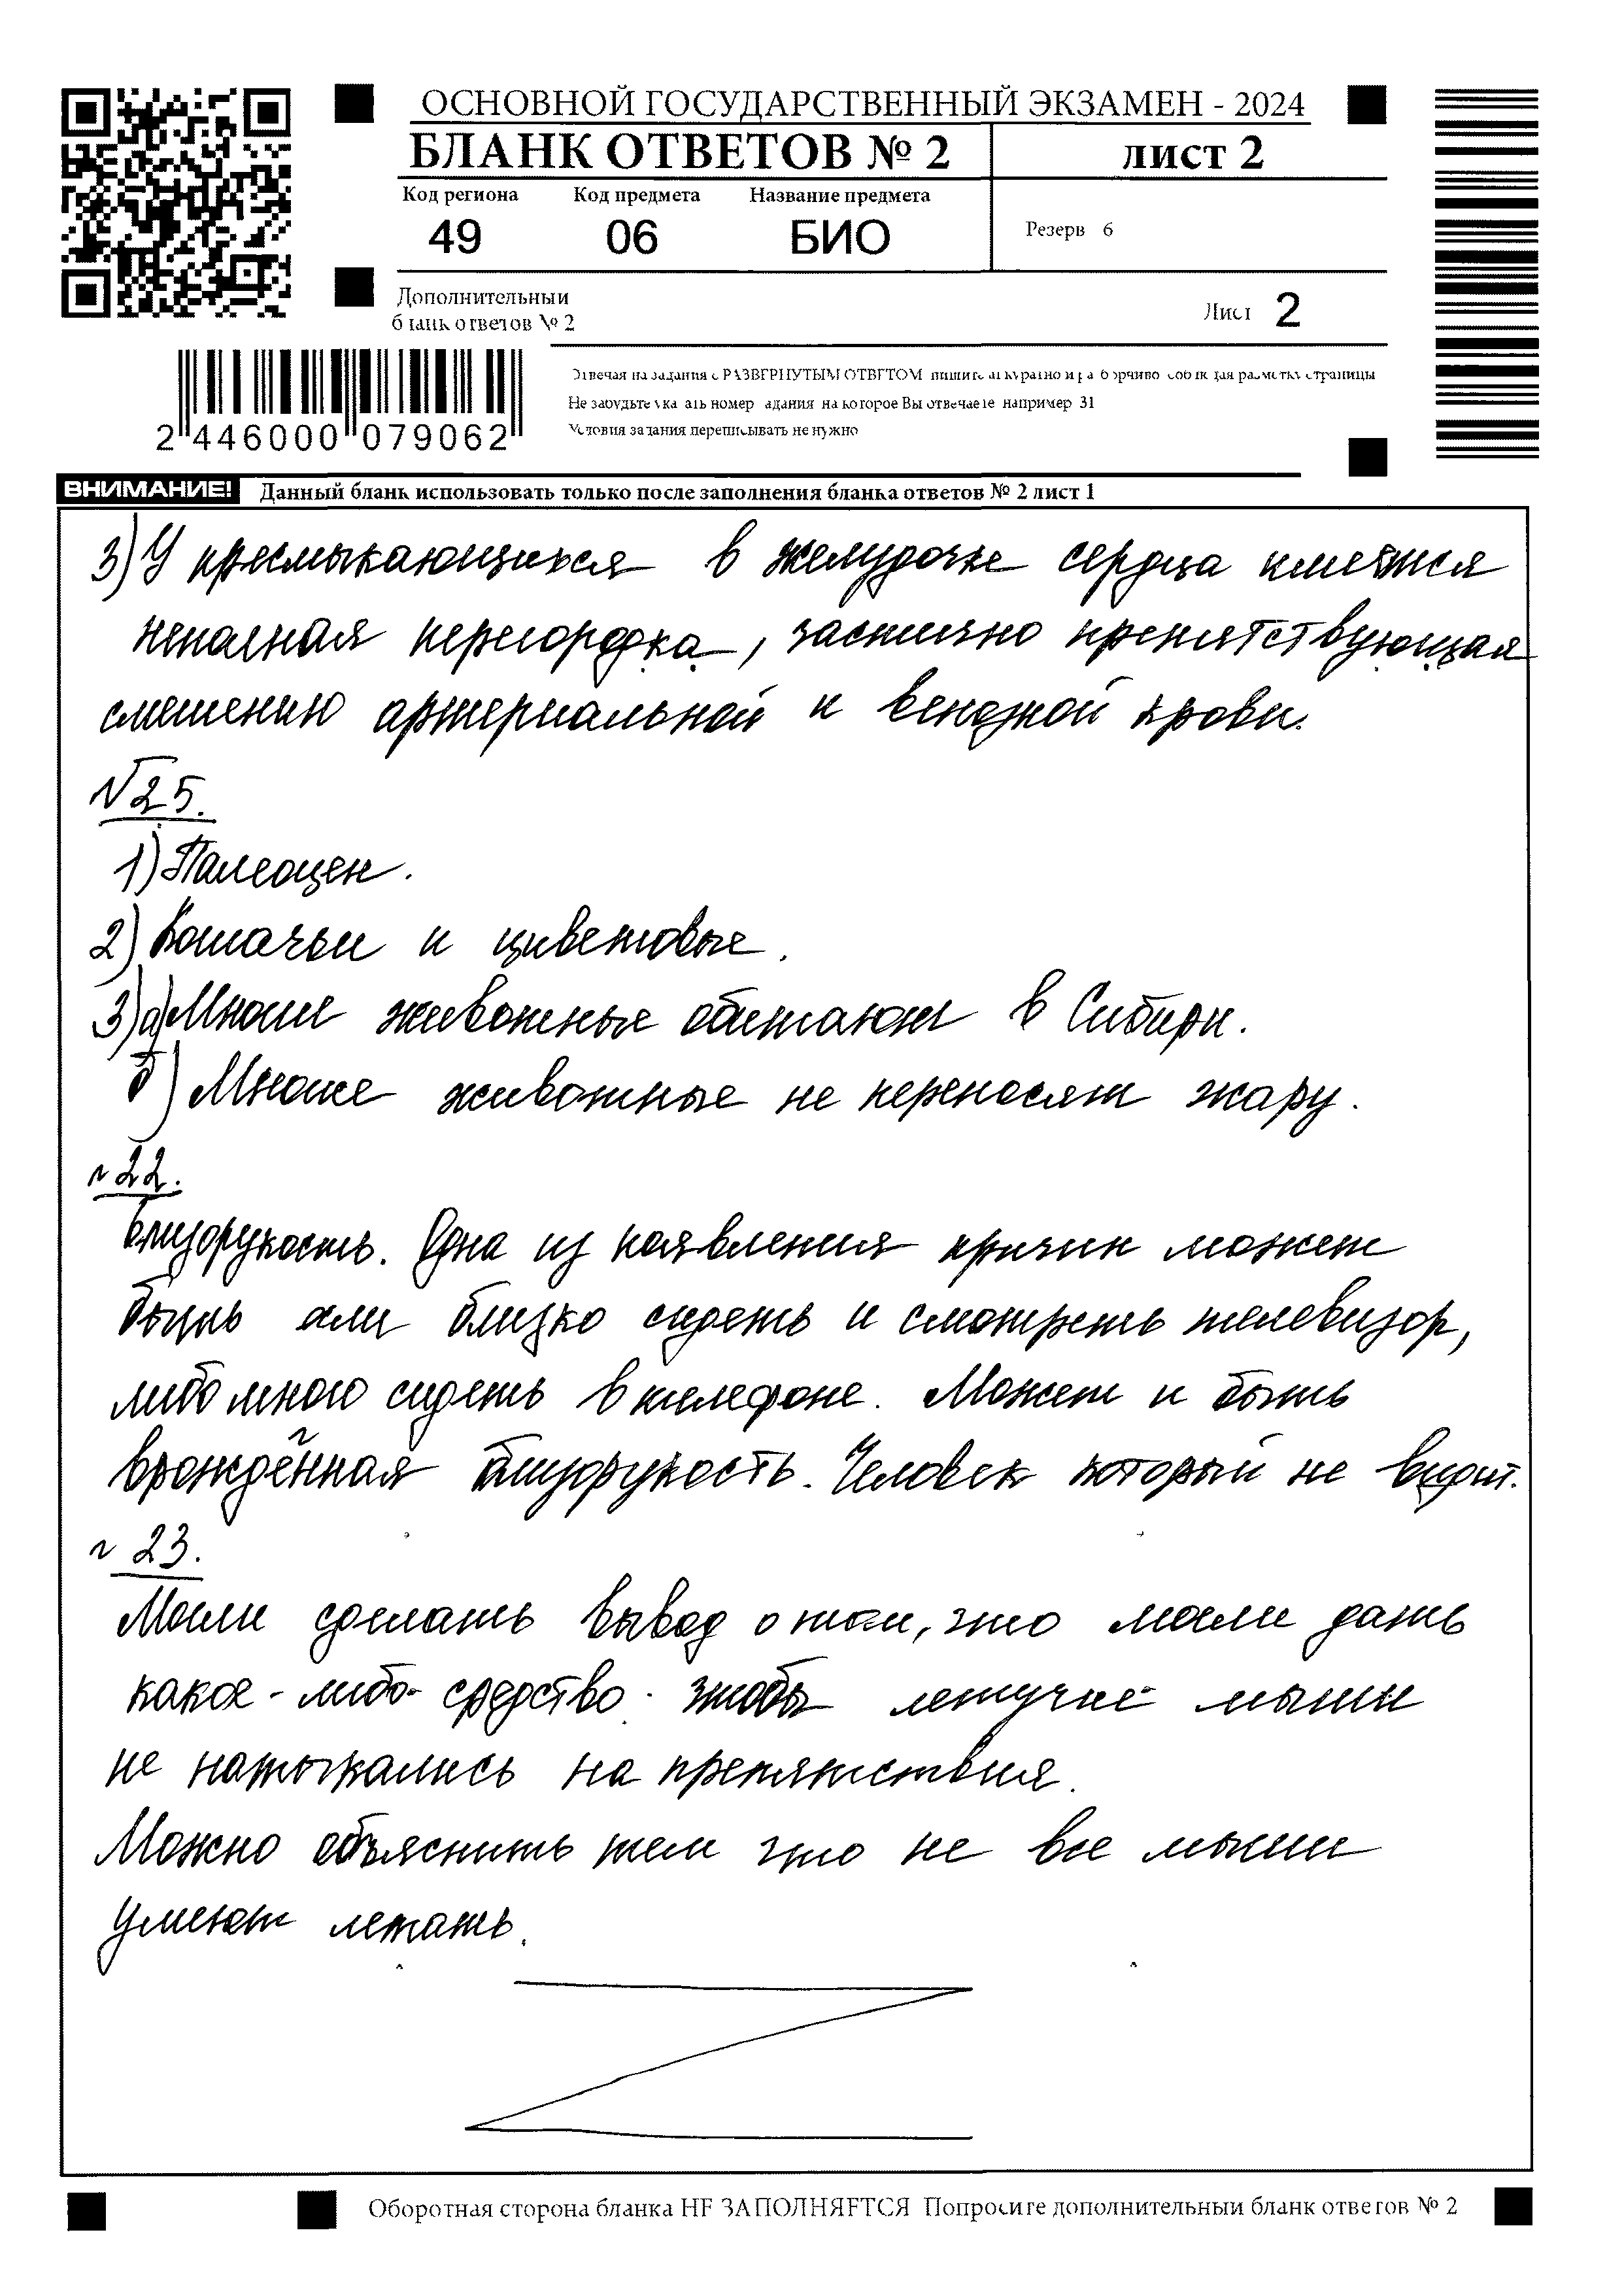 ОСНОВНОЙ ГОСУДАРСТВЕННЫЙ ЭКЗАМЕН - 2024
БЛАНК ОТВЕТОВ № 2
лист 2
Код региона Код предмета Название предмета
49 06 БИО
Резерв 6
Дополнительный
бланк ответов № 2
Лист 2
Отвечая на задания с РАЗВЕРНУТЫМ ОТВЕТОМ пишите аккуратно и разборчиво соблюдая разметку страницы
Не забудьте указать номер задания на которое Вы отвечаете например 31
Условия задания переписывать не нужно
2 446000 079062
ВНИМАНИЕ! Данный бланк использовать только после заполнения бланка ответов № 2 лист 1
3) У пресмыкающихся в желудочке сердца имеется
неполная перегородка, частично препятствующая
смешению артериальной и венозной крови.
№25.
1) Палеоцен.
2) Кошачьи и циветовые.
3) а) Многие животные обитают в Сибири.
б) Многие животные не переносят жару.
№22.
Близорукость. Одна из появления причин может
быть или близко сидеть и смотреть телевизор,
либо много сидеть в телефоне. Может и быть
врождённая близорукость. Человек который не видит.
№ 23.
Могли сделать вывод о том, что могли дать
какое-либо средство. чтобы летучие мыши
не натыкались на препятствия.
Можно объяснить тем что не все мыши
умеют летать.
Оборотная сторона бланка НЕ ЗАПОЛНЯЕТСЯ Попросите дополнительный бланк ответов № 2